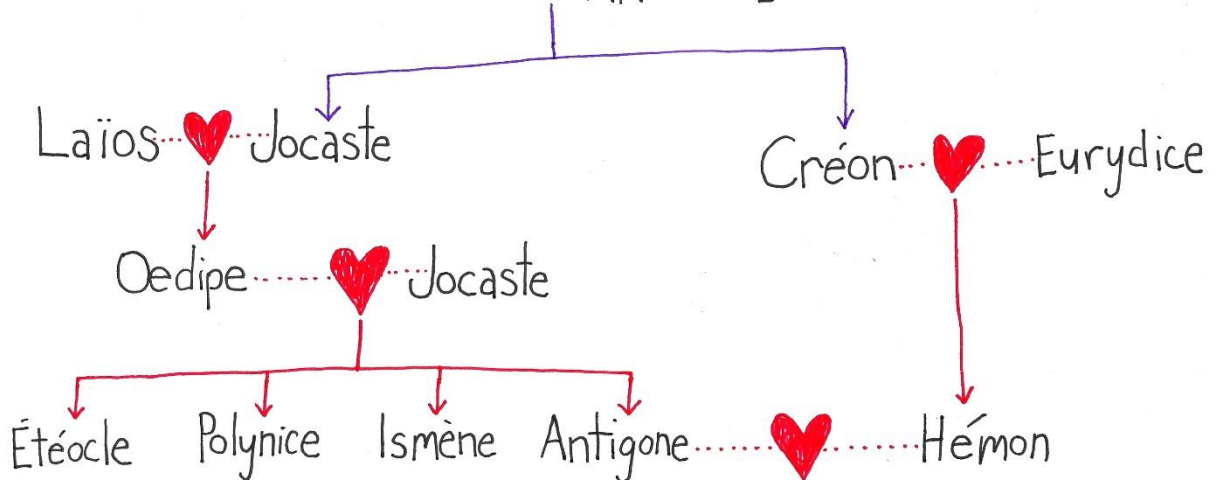 Laïos Jocaste Créon Eurydice
Oedipe Jocaste
Étéocle Polynice Ismène Antigone Hémon